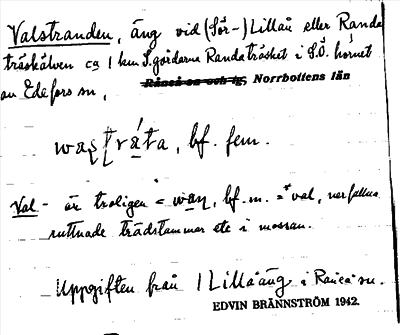 Valstranden, äng vid (Sör-) Lillån eller Randa
träskälven ca 1 km S. gårdarna Randaträsket i S.Ö. hörnet
av Edefors sn,
Råneå sn och tg, Norrbottens län
, bf. fem.
Val - är troligen = , bf. m. = *val, nerfallna
ruttnade trädstammar etc i mossan.
Uppgiften från Lillåäng i Råneå sn.
EDVIN BRÄNNSTRÖM 1942.